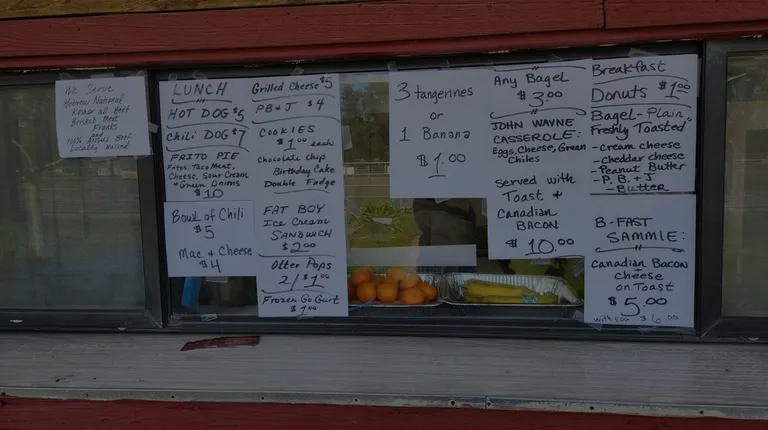 We Serve
Hebrew National
Kosher all Beef
Brisket Meat
Franks
and
100% Angus Beef
Locally Raised
LUNCH
HOT DOG $5
Chili DOG $7
FRITO PIE
Fritos, Taco Meat,
Cheese, Sour Cream
+ Green Onions
$10
Bowl of Chili
$5
Mac & Cheese
$4
Grilled Cheese $5
PB & J $4
COOKIES
$1.00 each
Chocolate Chip
Birthday Cake
Double Fudge
FAT BOY
Ice Cream
SANDWICH
$2.00
Otter Pops
2/$1.00
Frozen Go Gurt
$1.00
3 tangerines
or
1 Banana
$1.00
Any Bagel
$3.00
JOHN WAYNE
CASSEROLE:
Eggs, Cheese, Green
Chiles
Served with
Toast +
Canadian
BACON
$10.00
Breakfast
Donuts $1.00
Bagel - Plain
"Freshly Toasted"
- cream cheese
- cheddar cheese
- Peanut Butter
- P.B. + J
- Butter
B-FAST
SAMMIE:
Canadian Bacon
+
cheese
on Toast
$5.00
with egg $6.00